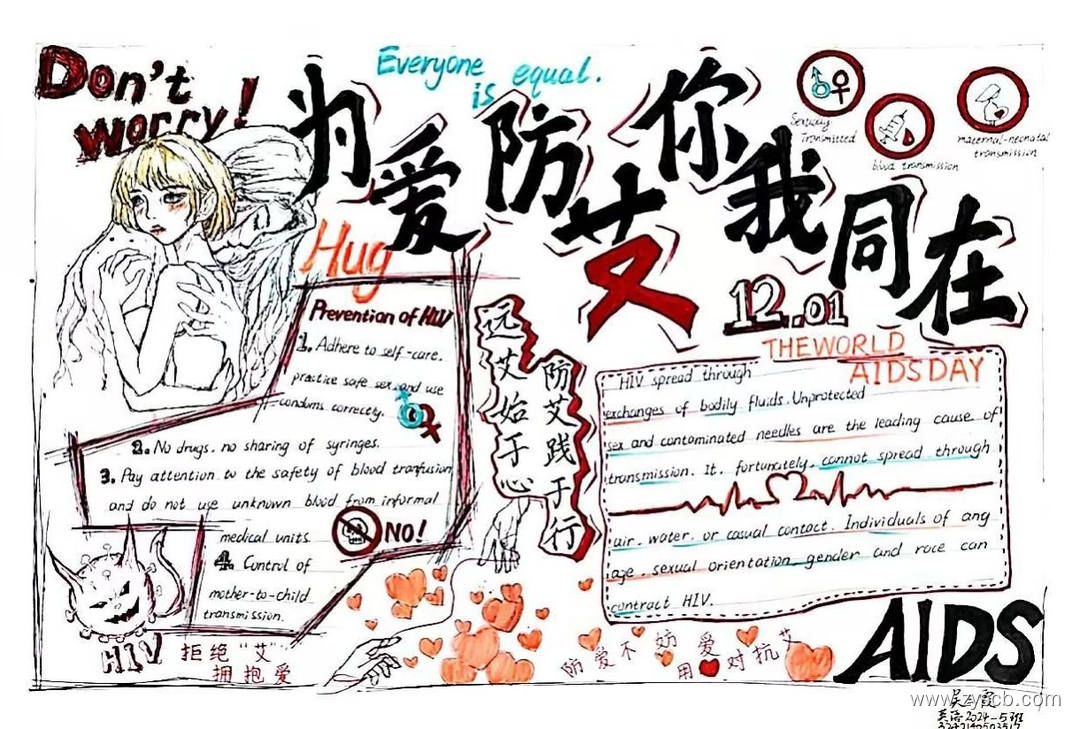 Don't
worry!
Everyone
is equal.
为爱防艾你我同在
Sexually
Transmitted
blood transmission
maternal-neonatal
transmission
Hug
12.01
THE WORLD
AIDS DAY
Prevention of HIV
1. Adhere to self-care.
practice safe sex and use
condoms correctly.
2. No drugs, no sharing of syringes.
3. Pay attention to the safety of blood tranfusion
and do not use unknown blood from informal
medical units.
NO!
4. Control of
mother-to-child
transmission.
远艾始于心
防艾践于行
"HIV spread through"
exchanges of bodily fluids. Unprotected
sex and contaminated needles are the leading cause of
transmission. It, fortunately, cannot spread through
air, water, or casual contact. Individuals of any
age, sexual orientation, gender and race can
contract HIV.
HIV
拒绝"艾"
拥抱爱
防爱不妨爱
用对抗艾
AIDS
英语2024-5班